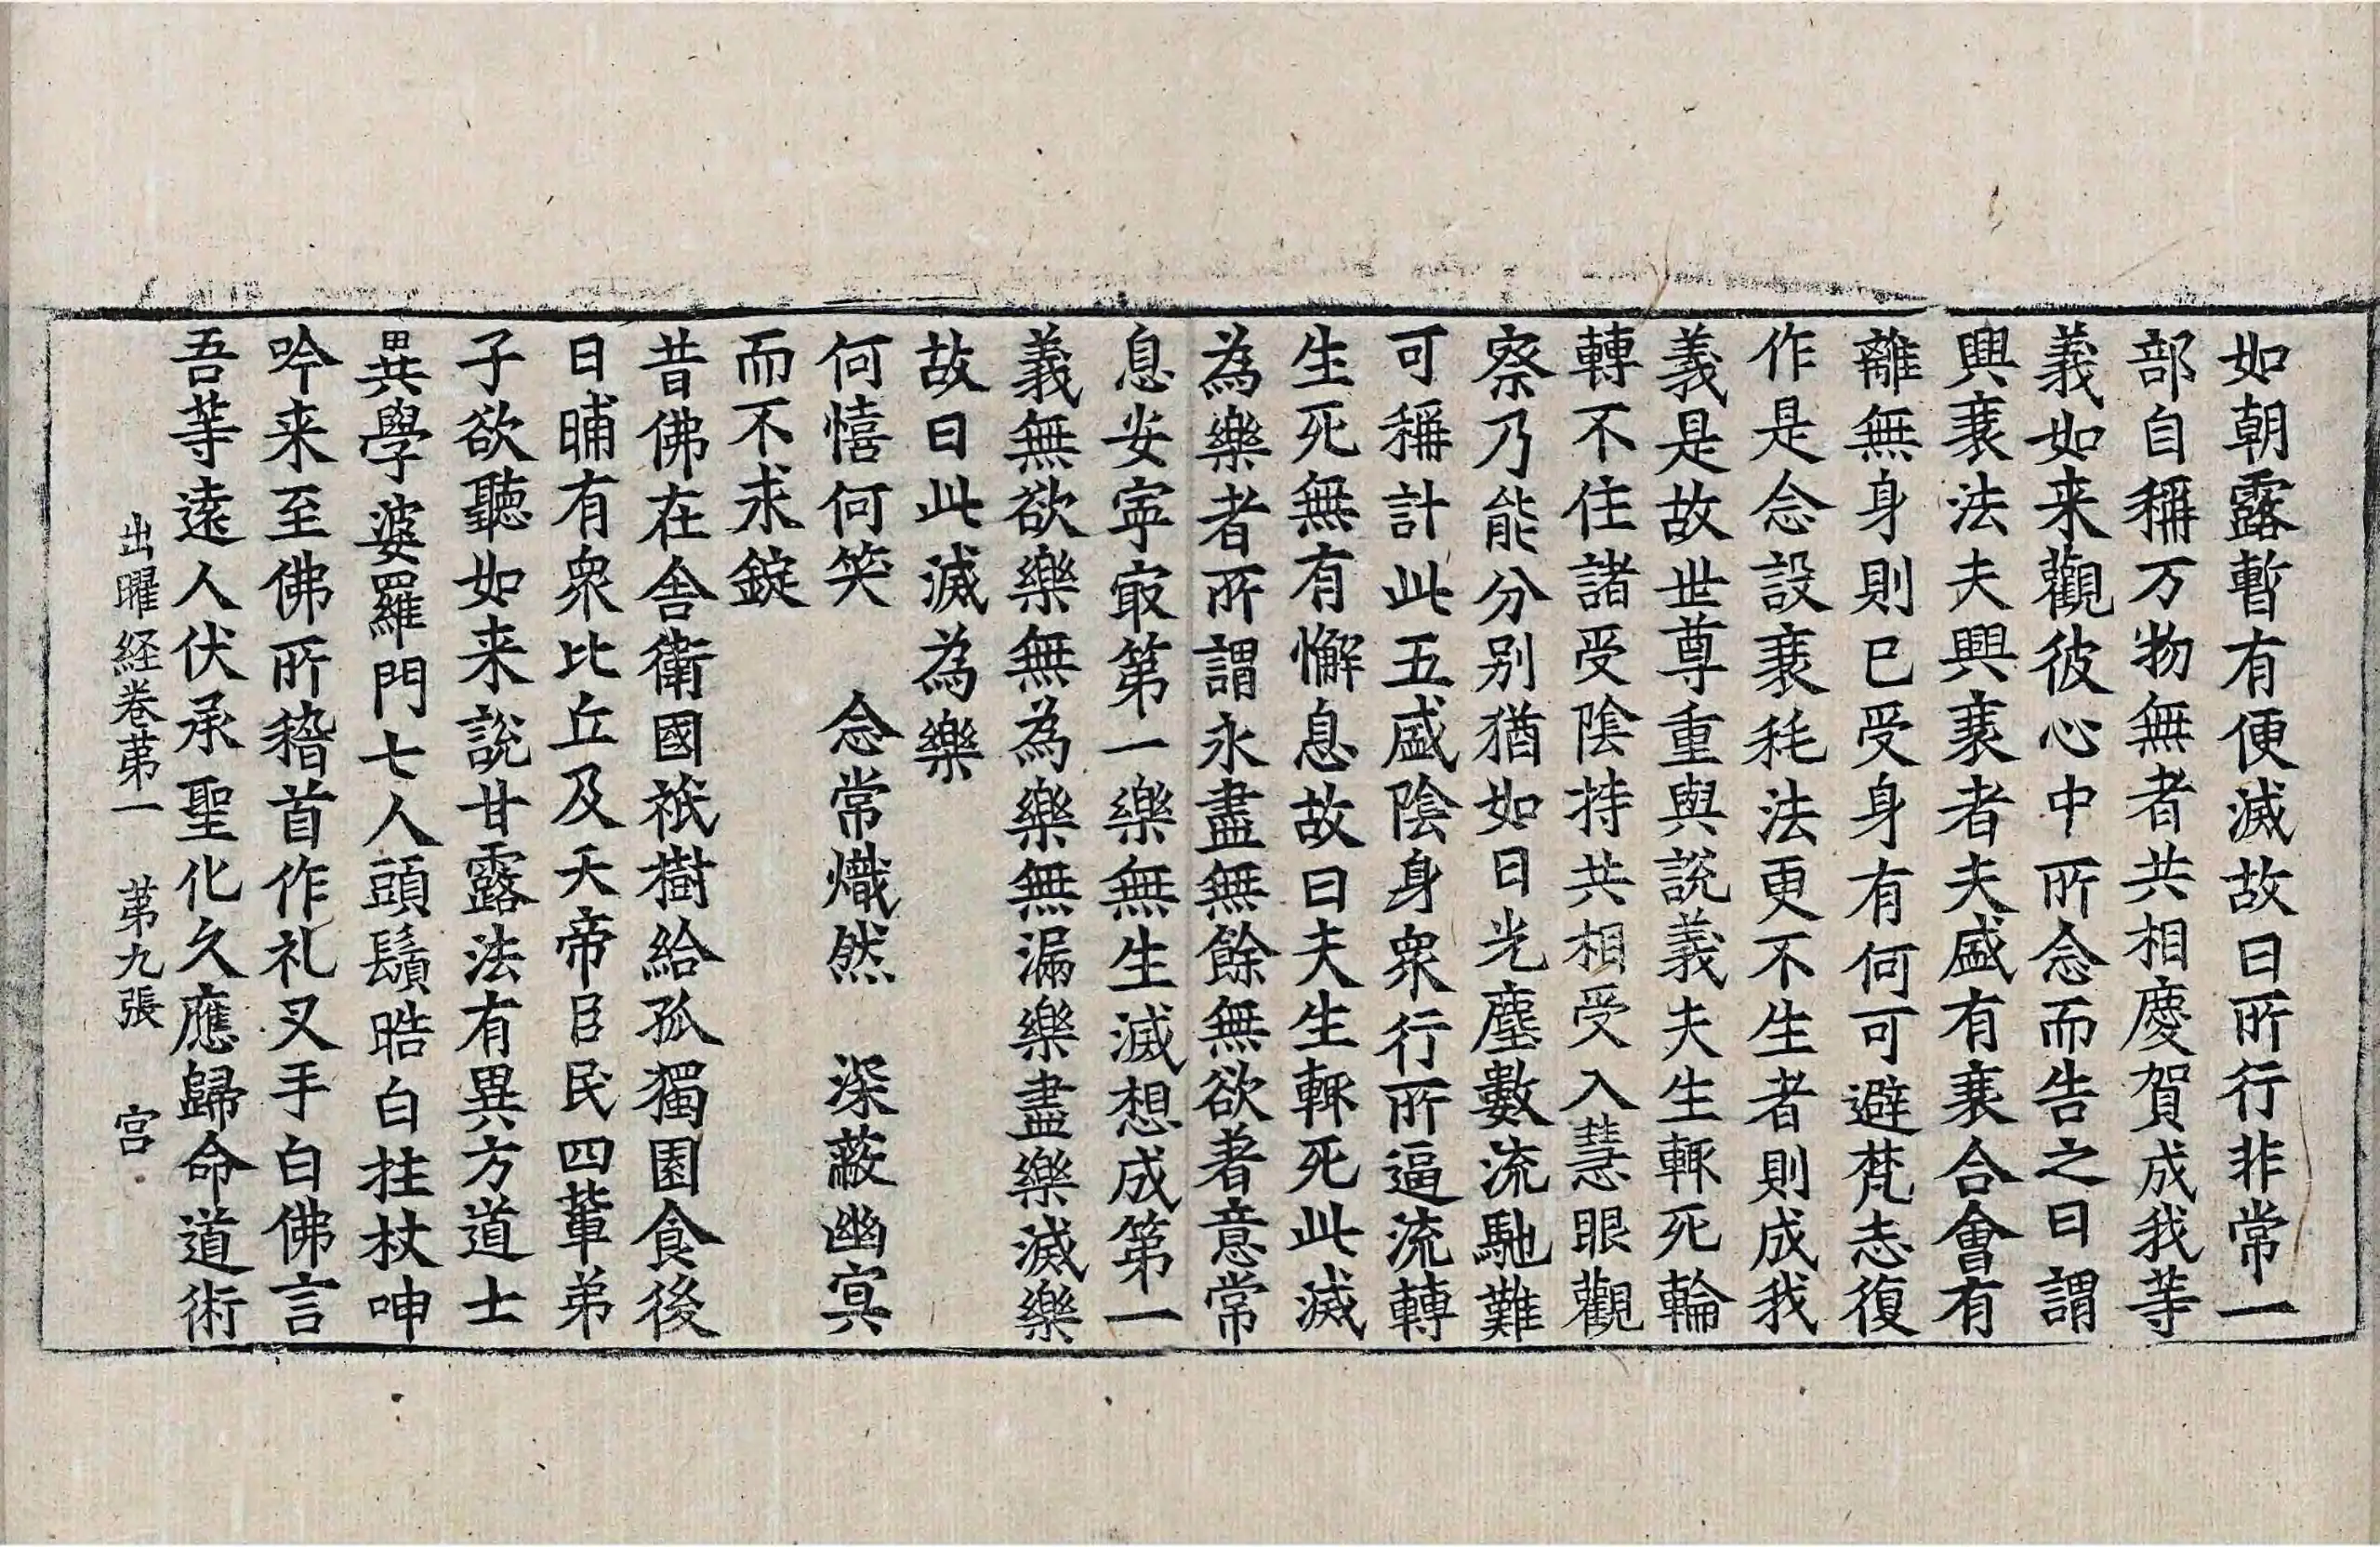 如朝露暫有便滅故曰所行非常一
部自稱万物無者共相慶賀成我等
義如来觀彼心中所念而告之曰謂
興衰法夫興衰者夫盛有衰合會有
離無身則已受身有何可避梵志復
作是念設衰耗法更不生者則成我
義是故世尊重與說義夫生輙死輪
轉不住諸受陰持共相受入慧眼觀
察乃能分別猶如日光塵數流馳難
可稱計此五盛陰身衆行所逼流轉
生死無有懈息故曰夫生輙死此滅
為樂者所謂永盡無餘無欲著意常
息安寧㝡第一樂無生滅想成第一
義無欲樂無為樂無漏樂盡樂滅樂
故曰此滅為樂
何憘何笑　念常熾然　深蔽幽冥
而不求錠
昔佛在舍衛國祇樹給孤獨園食後
日晡有衆比丘及天帝臣民四輩弟
子欲聽如来說甘露法有異方道士
異學婆羅門七人頭鬚晧白拄杖呻
吟来至佛所稽首作礼叉手白佛言
吾等遠人伏承聖化久應歸命道術
出曜経卷苐一　苐九張　宫